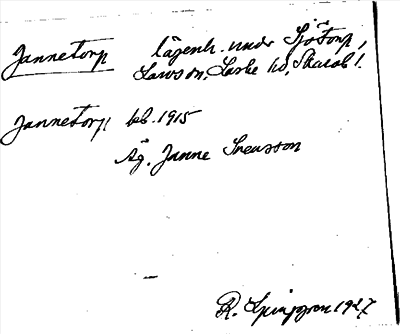 Jannetorp lägenh. under Sjötorp,
Laske hd, Skarab l.
Jannetorp kb. 1915
Äg. Janne Svensson
R. 1927